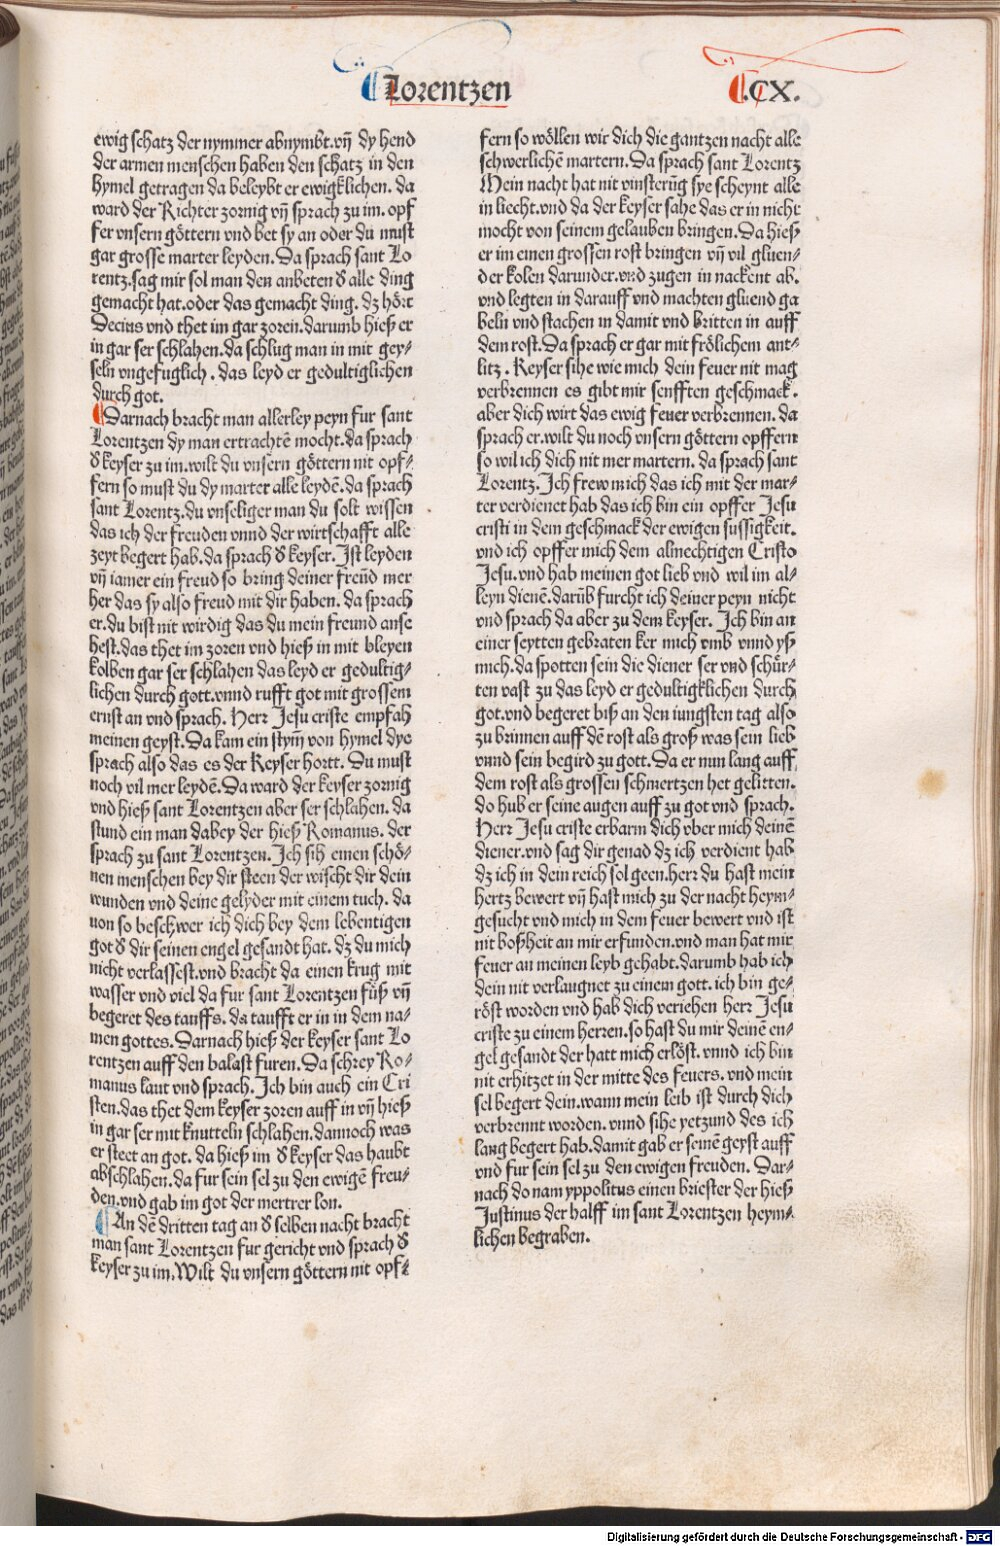 Lorentzen
.CX.
ewig schatz der nymmer abnymbt. vn̄ dy hend
der armen menschen haben den schatz in den
hymel getragen da beleybt er ewigklichen. da
ward der Richter zornig vn̄ sprach zu im. opf
fer vnsern göttern vnd bet sy an oder du must
gar grosse marter leyden. Da sprach sant Lo
rentz. sag mir sol man den anbeten ď alle ding
gemacht hat. oder das gemacht ding. dz hört
Decius vnd thet im gar zoren. darumb hieß er
in gar ser schlahen. da schlug man in mit gey⸗
seln vngefuglich. das leyd er gedultiglichen
durch got.
Darnach bracht man allerley peyn fur sant
Lorentzen dy man ertrachtē mocht. da sprach
ď keyser zu im. wilt du vnsern göttern nit opf⸗
fern so must du dy marter alle leydē. da sprach
sant Lorentz. du vnseliger man du solt wissen
das ich der freuden vnnd der wirtschafft alle
zeyt begert hab. da sprach ď keyser. Ist leyden
vn̄ iamer ein freud so bring deiner freūd mer
her das sy also freud mit dir haben. da sprach
er. du bist nit wirdig das du mein freund anse
hest. das thet im zoren vnd hieß in mit bleyen
kolben gar ser schlahen das leyd er gedultig⸗
lichen durch gott. vnnd rufft got mit grossem
ernst an vnd sprach. Herr Jesu criste empfah
meinen geyst. Da kam ein stym̄ von hymel dye
sprach also das es der Keyser hortt. Du must
noch vil mer leydē. Da ward der keyser zornig
vnd hieß sant Lorentzen aber ser schlahen. da
stund ein man dabey der hieß Romanus. der
sprach zu sant Lorentzen. Ich sih einen schö⸗
nen menschen bey dir steen der wischt dir dein
wunden vnd deine gelyder mit einem tuch. da
uon so beschwer ich dich bey dem lebentigen
got ď dir seinen engel gesandt hat. dz du mich
nicht verlassest. vnd bracht da einen krug mit
wasser vnd viel da fur sant Lorentzen füß vn̄
begeret des tauffs. da taufft er in in dem na⸗
men gottes. Darnach hieß der keyser sant Lo
rentzen auff den balast furen. Da schrey Ro⸗
manus laut vnd sprach. Ich bin auch ein Cri
sten. das thet dem keyser zoren auff in vn̄ hieß
in gar ser mit knutteln schlahen. dannoch was
er steet an got. da hieß im ď keyser das haubt
abschlahen. da fur sein sel zu den ewigē freu⸗
den. vnd gab im got der mertrer lon.
An dē dritten tag an ď selben nacht bracht
man sant Lorentzen fur gericht vnd sprach ď
keyser zu im. Wilt du vnsern göttern nit opf⸗
fern so wöllen wir dich die gantzen nacht alle
schwerlichē martern. Da sprach sant Lorentz
Mein nacht hat nit vinsterūg sye scheynt alle
in liecht. vnd da der keyser sahe das er in nicht
mocht von seinem gelauben bringen. Da hieß
er im einen grossen rost bringen vn̄ vil gluen⸗
der kolen darunder. vnd zugen in nackent ab.
vnd legten in darauff vnd machten gluend ga
beln vnd stachen in damit vnd britten in auff
dem rost. Da sprach er gar mit frölichem ant⸗
litz. Keyser sihe wie mich dein feuer nit mag
verbrennen es gibt mir senfften geschmack.
aber dich wirt das ewig feuer verbrennen. da
sprach er. wilt du noch vnsern göttern opffern
so wil ich dich nit mer martern. da sprach sant
Lorentz. Ich frew mich das ich mit der mar⸗
ter verdienet hab das ich bin ein opffer Jesu
cristi in dem geschmack der ewigen sussigkeit.
vnd ich opffer mich dem almechtigen Cristo
Jesu. vnd hab meinen got lieb vnd wil im al⸗
leyn dienē. darūb furcht ich deiner peyn nicht
vnd sprach da aber zu dem keyser. Ich bin an
einer seytten gebraten ker mich vmb vnnd yß
mich. da spotten sein die diener ser vnd schür⸗
ten vast zu das leyd er gedultigklichen durch
got. vnd begeret biß an den iungsten tag also
zu brinnen auff dē rost als groß was sein lieb
vnnd sein begird zu gott. Da er nun lang auff
dem rost als grossen schmertzen het gelitten.
do hub er seine augen auff zu got vnd sprach.
Herr Jesu criste erbarm dich vber mich deinē
diener. vnd sag dir genad dz ich verdient hab
dz ich in dein reich sol geen. herr du hast mein
hertz bewert vn̄ hast mich zu der nacht heym⸗
gesucht vnd mich in dem feuer bewert vnd ist
nit boßheit an mir erfunden. vnd man hat mir
feuer an meinen leyb gehabt. darumb hab ich
dein nit verlaugnet zu einem gott. ich bin ge⸗
röst worden vnd hab dich veriehen herr Jesu
criste zu einem herren. so hast du mir deinē en⸗
gel gesandt der hatt mich erlöst. vnnd ich bin
nit erhitzet in der mitte des feuers. vnd mein
sel begert dein. wann mein leib ist durch dich
verbrennt worden. vnnd sihe yetzund des ich
lang begert hab. damit gab er seinē geyst auff
vnd fur sein sel zu den ewigen freuden. Dar⸗
nach do nam yppolitus einen briester der hieß
Justinus der halff im sant Lorentzen heym⸗
lichen begraben.
Digitalisierung gefördert durch die Deutsche Forschungsgemeinschaft - DFG